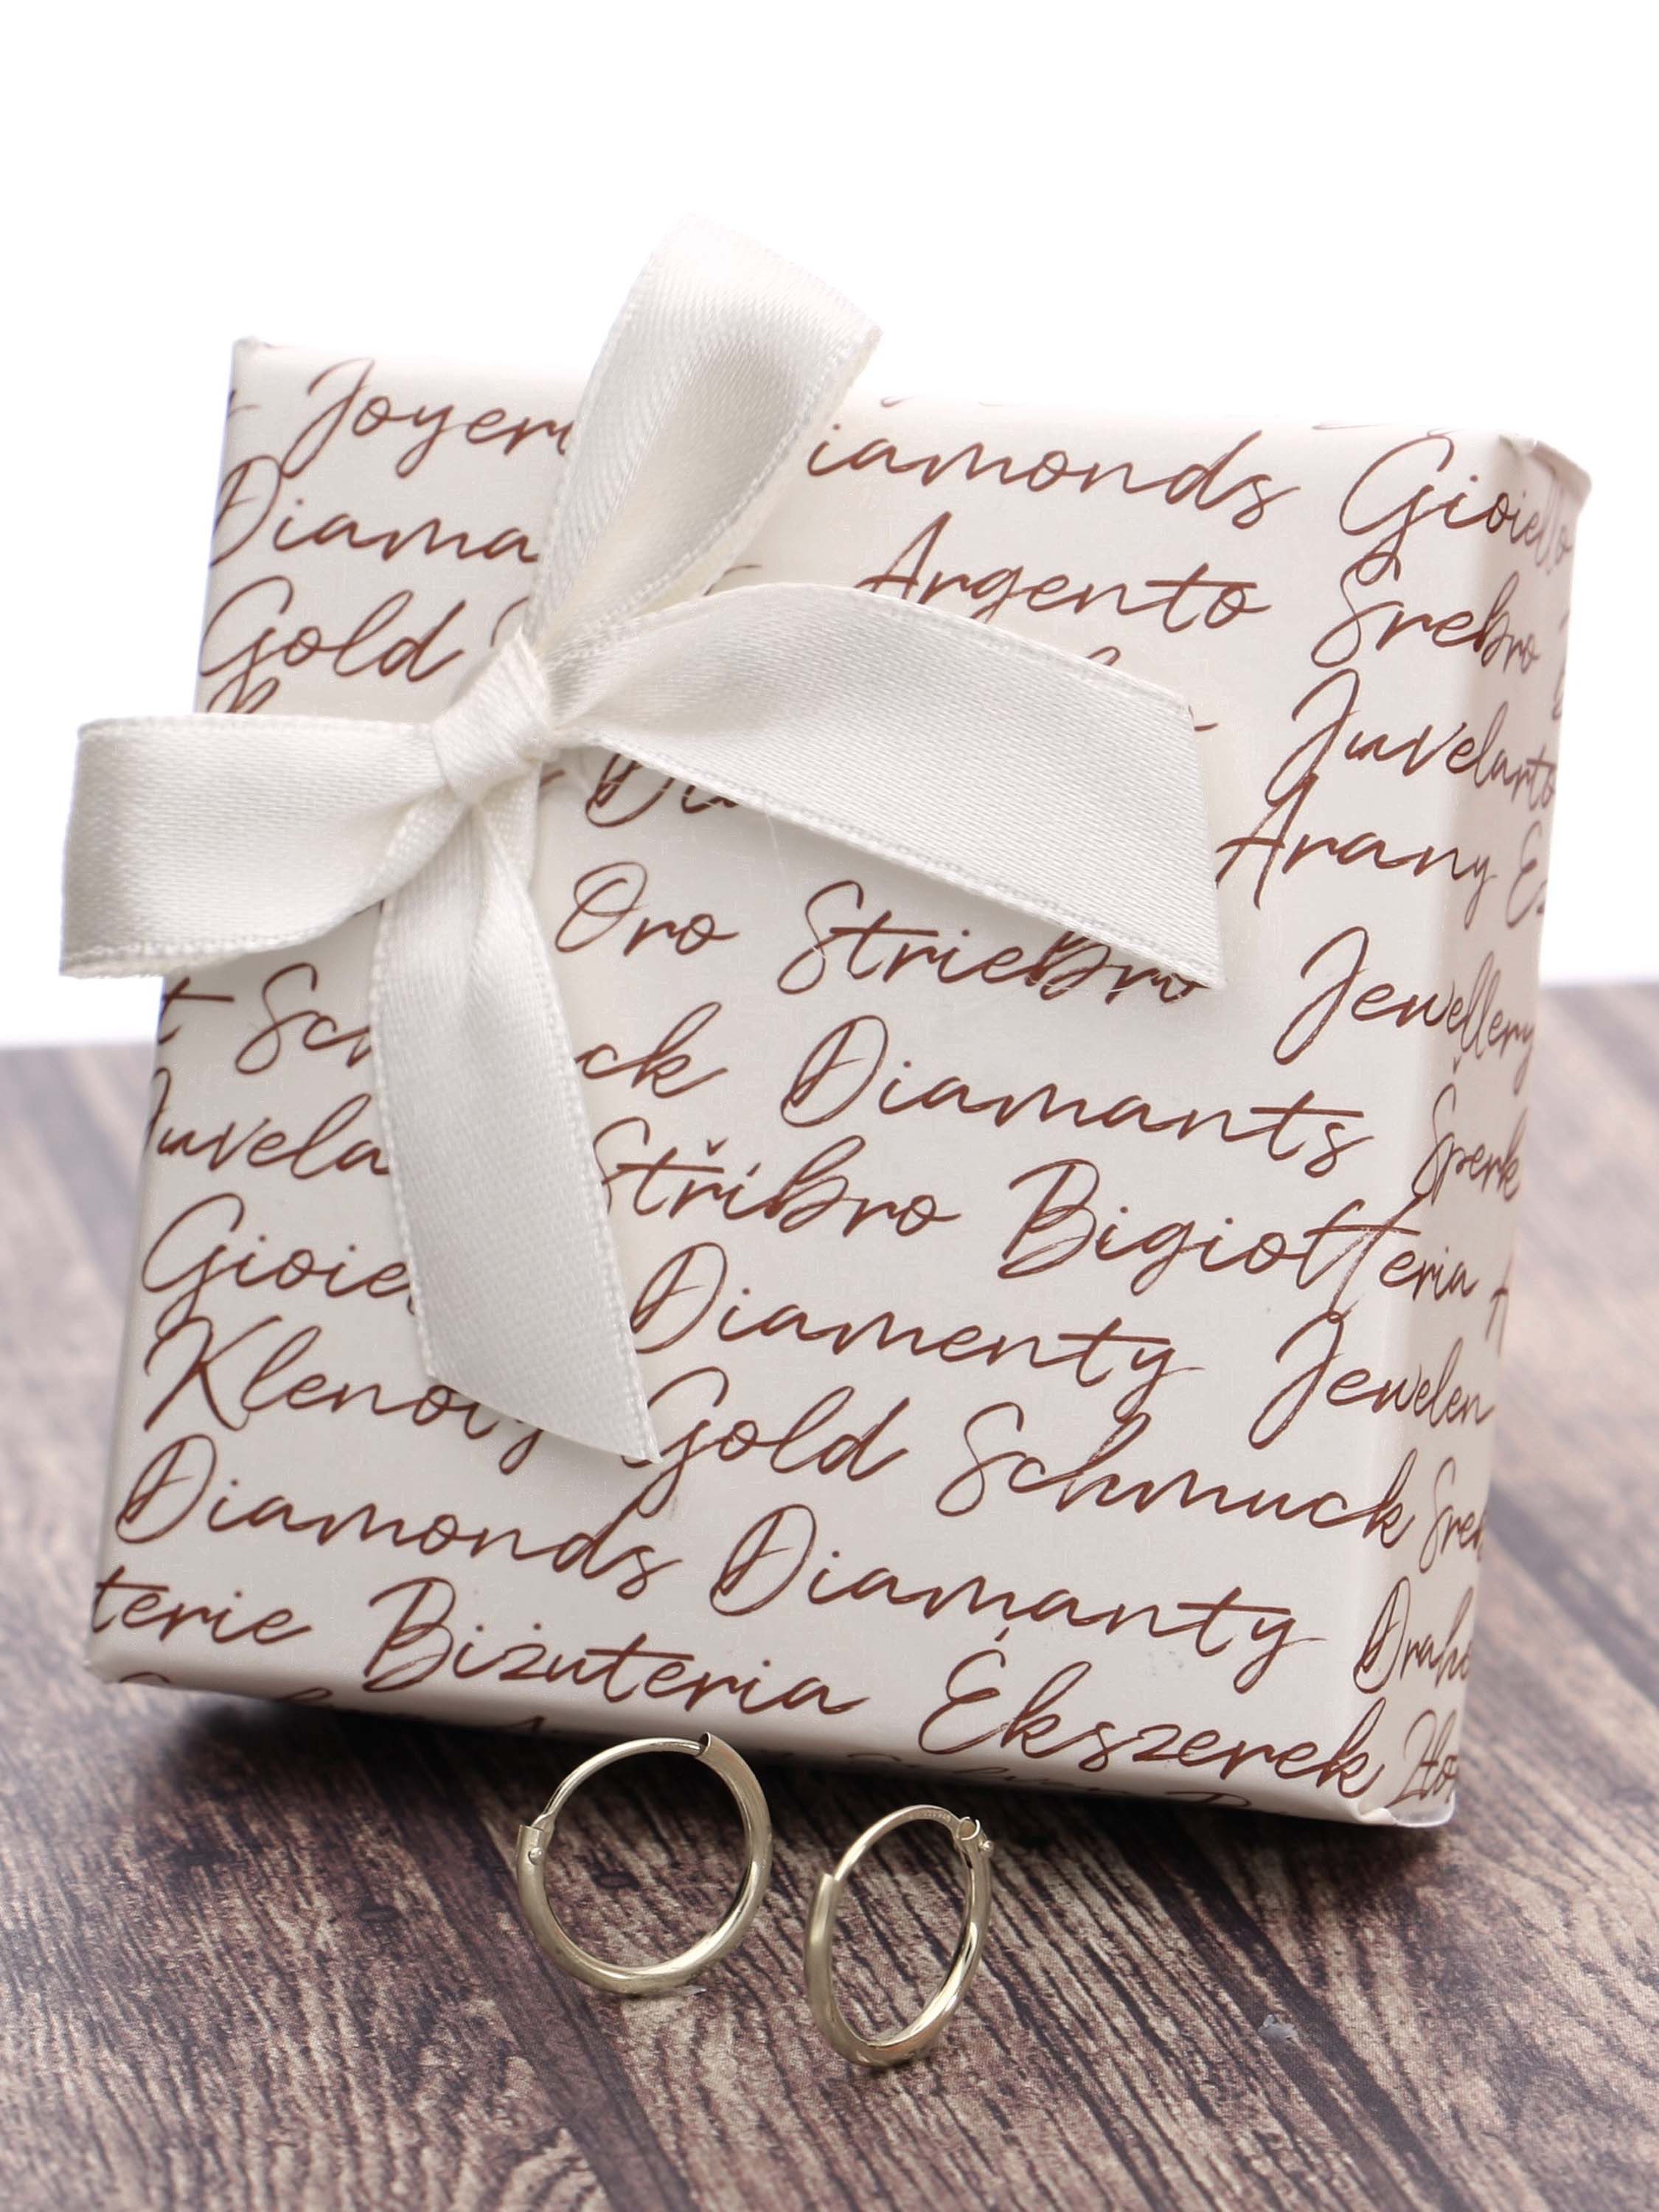 Joyer iamonds Gioiello
Diama Argento Srebro
Gold Juvelarto
Di Arany
Oro Striebro Jewellery
t Sc ck Diamants Šperk
Juvela Stříbro Bigiotteria
Gioie Diamenty Jewelen
Klenoty Gold Schmuck Sreb
Diamonds Diamanty Draho
terie Biżuteria Ékszerek Zło